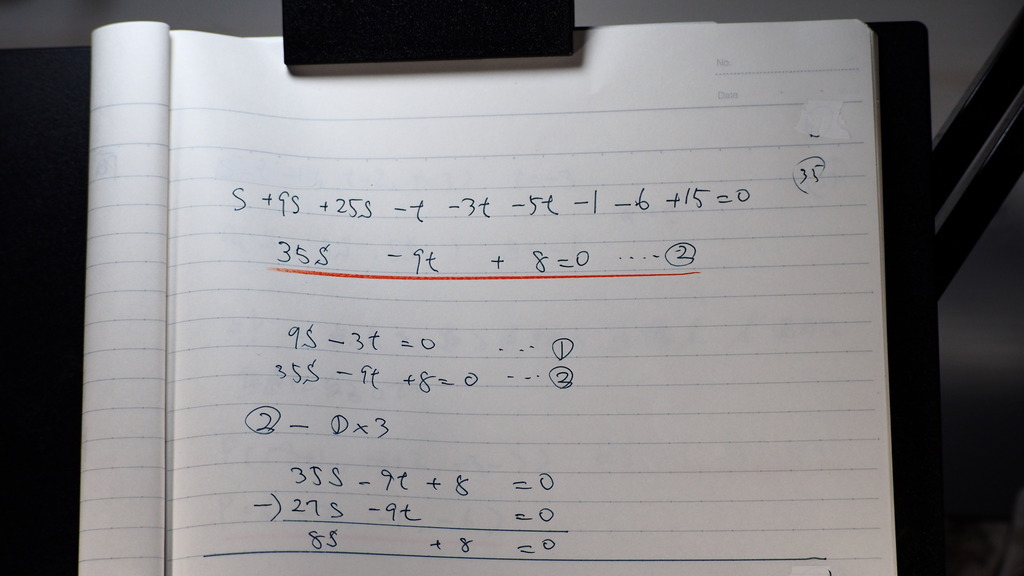 No.
Date
㉟
S + 9S + 25S - t - 3t - 5t - 1 - 6 + 15 = 0
35S - 9t + 8 = 0 ····· ②
9S - 3t = 0 ··· ①
35S - 9t + 8 = 0 ··· ②
② - ① × 3
35S - 9t + 8 = 0
-) 27S - 9t = 0
8S + 8 = 0